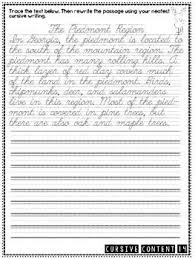 Trace the text below. Then rewrite the passage using your neatest cursive writing.
The Piedmont Region
In Georgia, the piedmont is located to
the south of the mountain region. The
piedmont has many rolling hills. A
thick layer of red clay covers much
of the land in the piedmont. Birds,
chipmunks, deer, and salamanders
live in this region. Most of the pied-
mont is covered in pine trees, but
there are also oak and maple trees.
CURSIVE CONTENT